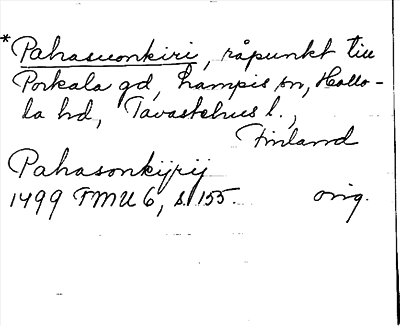 *Pahasuonkiri, råpunkt till
Porkala gd, Lampis sn, Hollo-
la hd, Tavastehus l.,
Finland
Pahasonkijrij
1499 FMU 6, s. 155. orig.